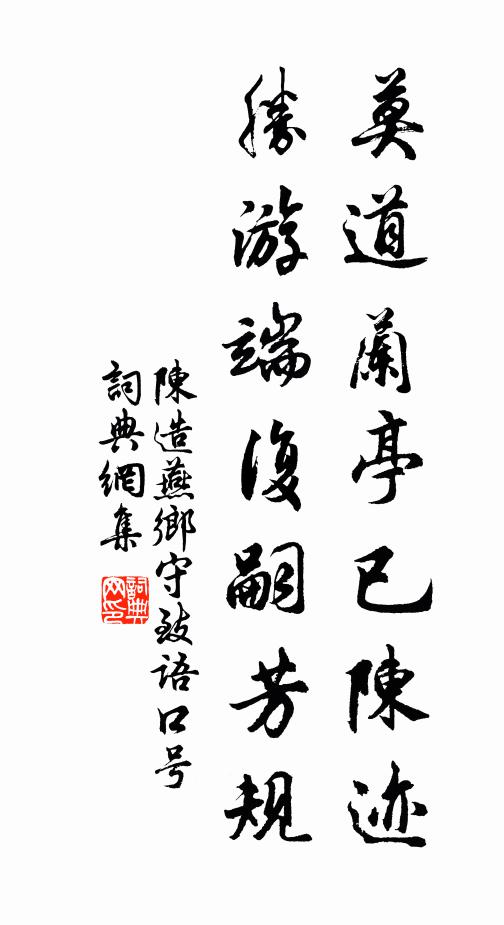 莫道蘭亭已陳迹
勝游端復嗣芳規
陳造燕鄉守致語口号
詞典網集
詞典网印